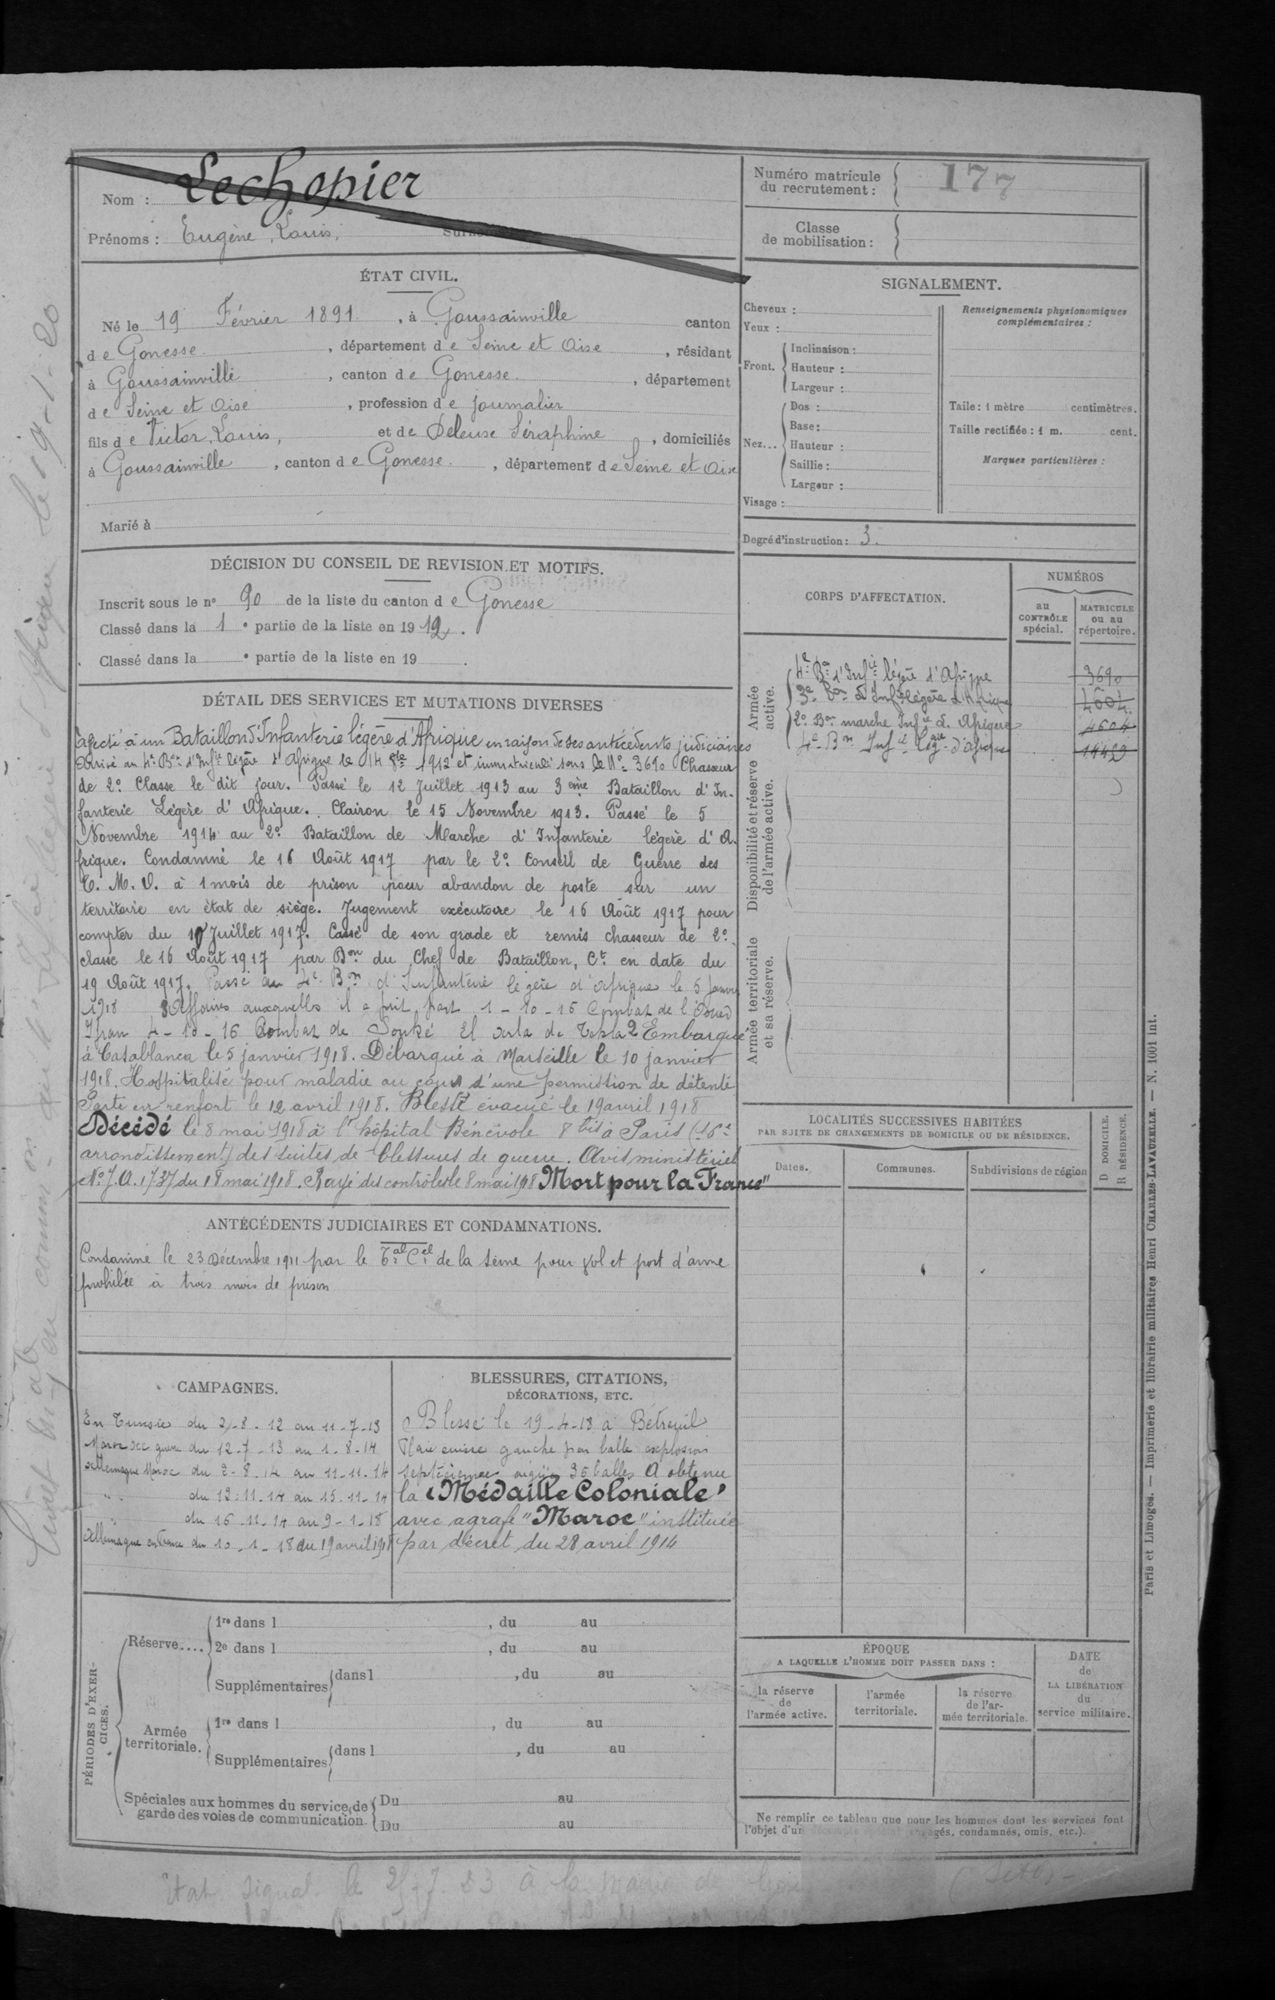 Nom : Lechopier
Prénoms : Eugène, Louis,
Numéro matricule du recrutement : 177
Classe de mobilisation :
ÉTAT CIVIL.
Né le 19 Février 1891, à Goussainville canton
de Gonesse, département de Seine et Oise, résidant
à Goussainville, canton de Gonesse, département
de Seine et Oise, profession de journalier
fils de Victor, Louis, et de Deleuse Séraphine, domiciliés
à Goussainville, canton de Gonesse, département de Seine et Oise
Marié à
DÉCISION DU CONSEIL DE REVISION ET MOTIFS.
Inscrit sous le n° 90 de la liste du canton de Gonesse
Classé dans la 1e partie de la liste en 1912.
Classé dans la e partie de la liste en 19 .
DÉTAIL DES SERVICES ET MUTATIONS DIVERSES
Affecté à un Bataillon d'Infanterie légère d'Afrique en raison de ses antécédents judiciaires
Arrivé au 4e Bon d'Infie légère d'Afrique le 14 8bre 1912 et immatriculé sous le N° 3690 Chasseur
de 2e Classe le dit jour. Passé le 12 Juillet 1913 au 3ème Bataillon d'In-
fanterie Légère d'Afrique. Clairon le 15 Novembre 1913. Passé le 5
Novembre 1914 au 2e Bataillon de Marche d'Infanterie légère d'A-
frique. Condamné le 16 Août 1917 par le 2e Conseil de Guerre des
T. M. O. à 1 mois de prison pour abandon de poste sur un
territoire en état de siège. Jugement exécutoire le 16 Août 1917 pour
compter du 18 Juillet 1917. Cassé de son grade et remis chasseur de 2e
classe le 16 Août 1917 par Bon du Chef de Bataillon, Ct en date du
19 Août 1917. Passé au 4e Bon d'Infanterie légère d'Afrique le 5 janvier
1918 Affaires auxquelles il a pris part 1-10-16 Combat de l'Oued
4-10-16 Combat de El Embarqué
à Casablanca le 5 janvier 1918. Débarqué à Marseille le 10 janvier
1918. Hospitalisé pour maladie au cours d'une permission de détente
Parti en renfort le 12 avril 1918. Blessé évacué le 19 avril 1918
Décédé le 8 mai 1918 à l'hôpital Bénévole 8 bis à Paris (16e
arrondissement) des suites de blessures de guerre. Avis ministériel
No J.A. 1737 du 18 mai 1918. Rayé des contrôles le 8 mai 1918 "Mort pour la France"
ANTÉCÉDENTS JUDICIAIRES ET CONDAMNATIONS.
Condamné le 23 Décembre 1911 par le Tal Cel de la Seine pour vol et port d'arme
prohibée à trois mois de prison
CAMPAGNES.
En Tunisie du 2-8-12 au 11-7-13
Maroc occ guerre du 12-7-13 au 1-8-14
Allemagne Maroc du 2-8-14 au 11-11-14
" du 12-11-14 au 15-11-14
" du 16-11-14 au 9-1-18
Allemagne en France du 10-1-18 au 19 avril 1918
BLESSURES, CITATIONS,
DÉCORATIONS, ETC.
Blessé le 19-4-18 à
Plaie cuisse gauche par balle explosion
septicémie aigüe A obtenu
la "Médaille Coloniale"
avec agrafe "Maroc" instituée
par décret du 28 avril 1914
PÉRIODES D'EXERCICES.
Réserve.... 1re dans l , du au
2e dans l , du au
Supplémentaires dans l , du au
Armée territoriale. 1re dans l , du au
Supplémentaires dans l , du au
Spéciales aux hommes du service de
garde des voies de communication. Du au
Du au
SIGNALEMENT.
Cheveux :
Yeux :
Front. Inclinaison :
Hauteur :
Largeur :
Nez... Dos :
Base :
Hauteur :
Saillie :
Largeur :
Visage :
Renseignements physionomiques
complémentaires :
Taile : 1 mètre centimètres.
Taille rectifiée : 1 m. cent.
Marques particulières :
Degré d'instruction : 3.
CORPS D'AFFECTATION.
NUMÉROS
au CONTRÔLE spécial.
MATRICULE ou au répertoire.
Armée active.
4e Bon d'Infie légère d'Afrique 3690
3e Bon d'Infie légère d'Afrique 4604
2e Bon marche Infie L. Afrique 4604
4e Bon Infie Légère d'Afrique
Disponibilité et réserve de l'armée active.
Armée territoriale et sa réserve.
LOCALITÉS SUCCESSIVES HABITÉES
PAR SUITE DE CHANGEMENTS DE DOMICILE OU DE RÉSIDENCE.
Dates.
Communes.
Subdivisions de région
D DOMICILE.
R RÉSIDENCE.
ÉPOQUE
A LAQUELLE L'HOMME DOIT PASSER DANS :
la réserve de l'armée active.
l'armée territoriale.
la réserve de l'armée territoriale.
DATE de LA LIBÉRATION du service militaire.
Ne remplir ce tableau que pour les hommes dont les services font
l'objet d'un engagés, condamnés, omis, etc.).
Paris et Limoges. — Imprimerie et librairie militaires Henri CHARLES-LAVAUZELLE. — N. 1001 Int.